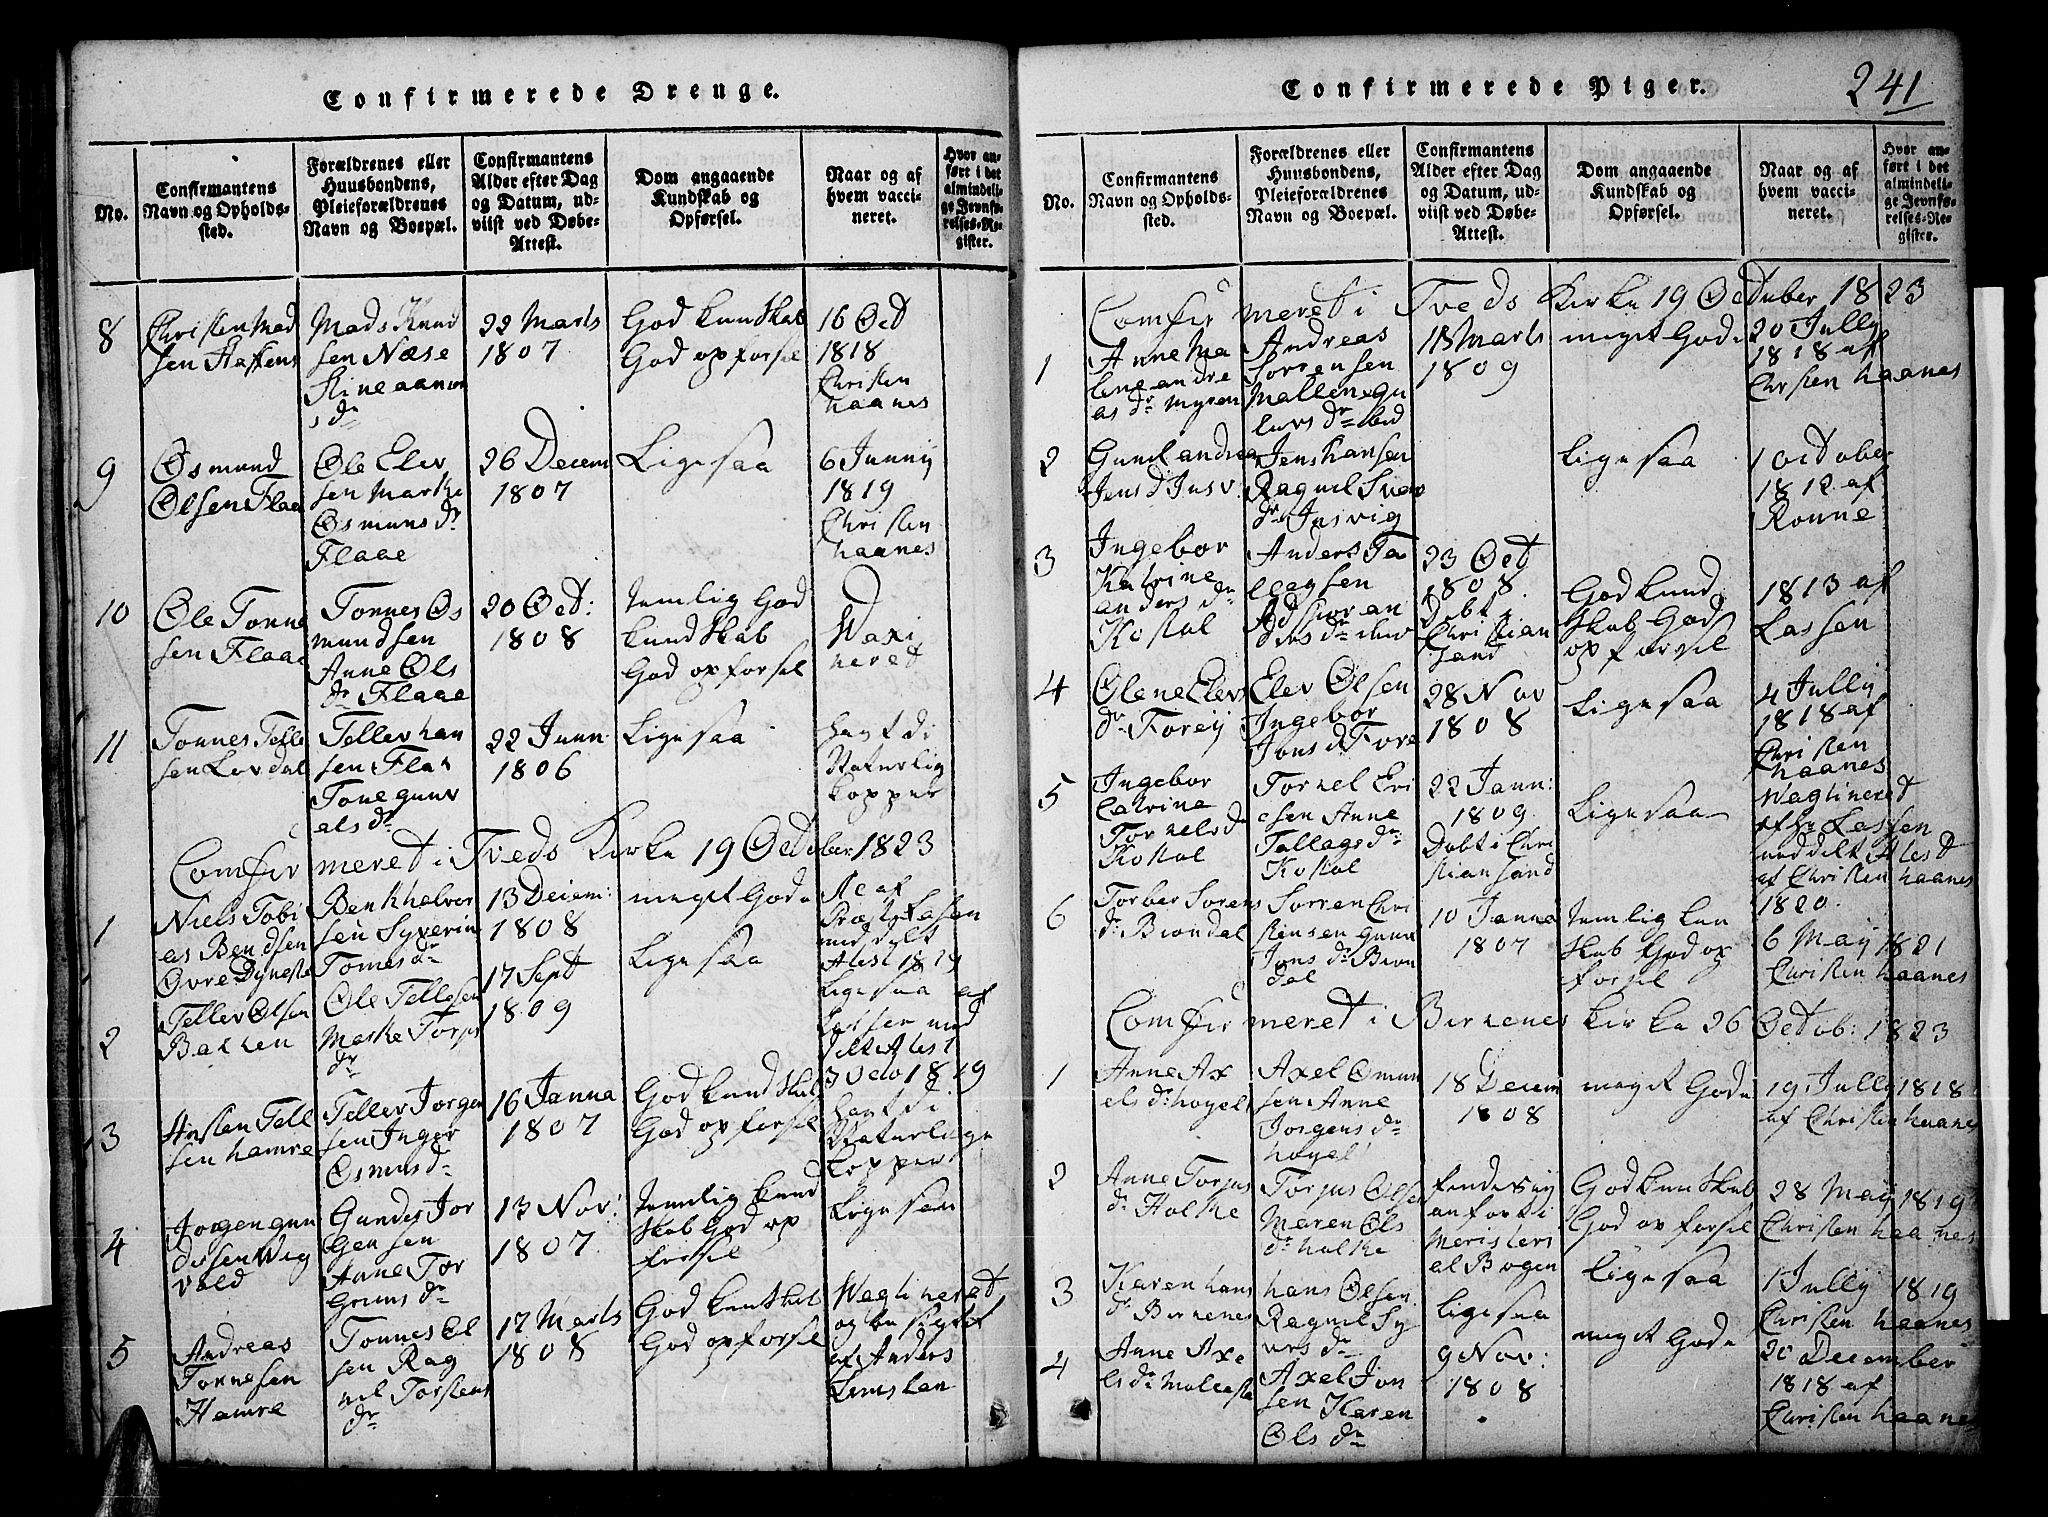 Confirmerede Drenge.
No.
Confirmantens
Navn og Opholds-
sted.
Forældrenes eller
Huusbondens,
Pleieforældrenes
Navn og Boepæl.
Confirmantens
Alder efter Dag
og Datum, ud-
viist ved Døbe-
Attest.
Dom angaaende
Kundskab og
Opførsel.
Naar og af
hvem vacci-
neret.
Hvor an-
ført i det
almindeli-
ge Jevnfø-
relses-Re-
gister.
8
Christen Mad
sen
Mads Knud
sen Næse
Stine aanon
sdr
22 Marts
1807
God kunskab
God opforsel
16 Oct
1818
Christen
haanes
9
Osmund
Olsen Flaa
Ole Elev
sen Marthe
Osmunsdr
Flaae
26 Decem
1807
Ligesaa
6 Junny
1819
Christen
haanes
10
Ole Tonne
sen Flaae
Tonnes Os
mundsen
Anne Ols
dr Flaae
20 Oct:
1808
temlig God
kundskab
God opforsel
Waxi
neret
11
Tonnes Telle
sen Lovdal
Tellev han
sen Flaa
Tone gunv
alsdr
22 Junn
1806
Ligesaa
havt di
Naturlig
kopper
Comfirmeret i Tveds Kirke 19 October 1823
1
Niels Tobi
as Bendsen
Ovre Dyneste
Benth halvor
sen Syverin
Tomesdr
13 Decem:
1808
meget Gode
Ao af
Præst Lasen
meddelt
Atest 1819
2
Tellev Olsen
Bakken
Ole Tellesen
Marthe Torjus
dr
17 Sept
1809
Ligesaa
Ligesaa af
Lassen med
delt Atest
3 Octo 1819
3
Austen Tell
sen hamre
Tellev Jorgen
sen Inger
Osmunsdr
16 Janna
1807
God kundskab
God opforsel
havt di
Naturlige
kopper
4
Jorgen gun
dersen Wig
vold
Gunder Jor
Gensen
Anne Tor
Grimsdr
13 Nov:
1807
temlig kund
skab God op
forsel
Ligesaa
5
Andreas
Tonnesen
Hamre
Tonnes Ol
sen Rag
nel Torstens
dr
17 Marts
1808
God kunskab
God opforsel
Waglineret
og besigtet
af Anders
241
Confirmerede Piger.
No.
Confirmantens
Navn og Opholds-
sted.
Forældrenes eller
Huusbondens,
Pleieforældrenes
Navn og Boepæl.
Confirmantens
Alder efter Dag
og Datum, ud-
viist ved Døbe-
Attest.
Dom angaaende
Kundskab og
Opførsel.
Naar og af
hvem vacci-
neret.
Hvor an-
ført i det
almindeli-
ge Jevnfø-
relses-Re-
gister.
Comfirmeret i Tveds Kirke 19 October 1823
1
Anne Ma
lene andre
asdr Myren
Andreas
Sorrensen
Mallene gu
levsdr
Marts
1809
meget Gode
20 Jully
1818 af
Christen haanes
2
Gunel andrea
Jensd Jusv
Jens hansen
Ragnel Sven
dr Jusvig
Ligesaa
1 October
1812 af
Ronne
3
Ingebor
Katrine
andersdr
Kostøl
Anders Ta
llagsen
23 Oct
1808
Dobt i
Christian
sand
God kund
skab God
opforsel
1813 af
Lassen
4
Olene Elevs
dr Forey
Elev Olsen
Ingebor
Jonsd Fore
28 Nov
1808
Ligesaa
4 Jully
1818 af
Christen
haanes
5
Ingebor
Catrine
Torkelsd
Kostøl
Torkel Eri
csen Anne
Tallagsdr
Kostøl
22 Jann:
1809
Dobt i Chri
stiansand
Ligesaa
Waglineret
af hr Lassen
meddelt Atest
af Christen haanes
1820
6
Torber Sorens
dr Biondal
Sorren Chri
stensen Gunil
Jonsdr Bion
dal
10 Janna
1807
temlig kun
skab God op
forsel
6 May 1821
Christen haanes
Comfirmeret i Birkenes kirke 26 Octob: 1823
1
Anne Ax
elsdr hogel
Axel Omun
sen Anne
Jorgensdr
hogel
18 Decem
1808
meget Gode
19 Jully 1818
af Christen haanes
2
Anne Torjus
dr Holthe
Torjus Olsen
Maren Ols
dr holthe
findes ey
anfort i
Meristeri
el Bogen
God kunskab
God opforsel
28 May 1819
Christen haanes
3
Karen hans
dr Birkenes
hans Olsen
Ragnel Sy
versdr
Ligesaa
Ligesaa
1 Jully 1819
Christen haanes
4
Anne Axe
lsdr
Axel Jon
sen Karen
Olsdr
9 Nov:
1808
meget Gode
20 December
1818 af
Christen haanes